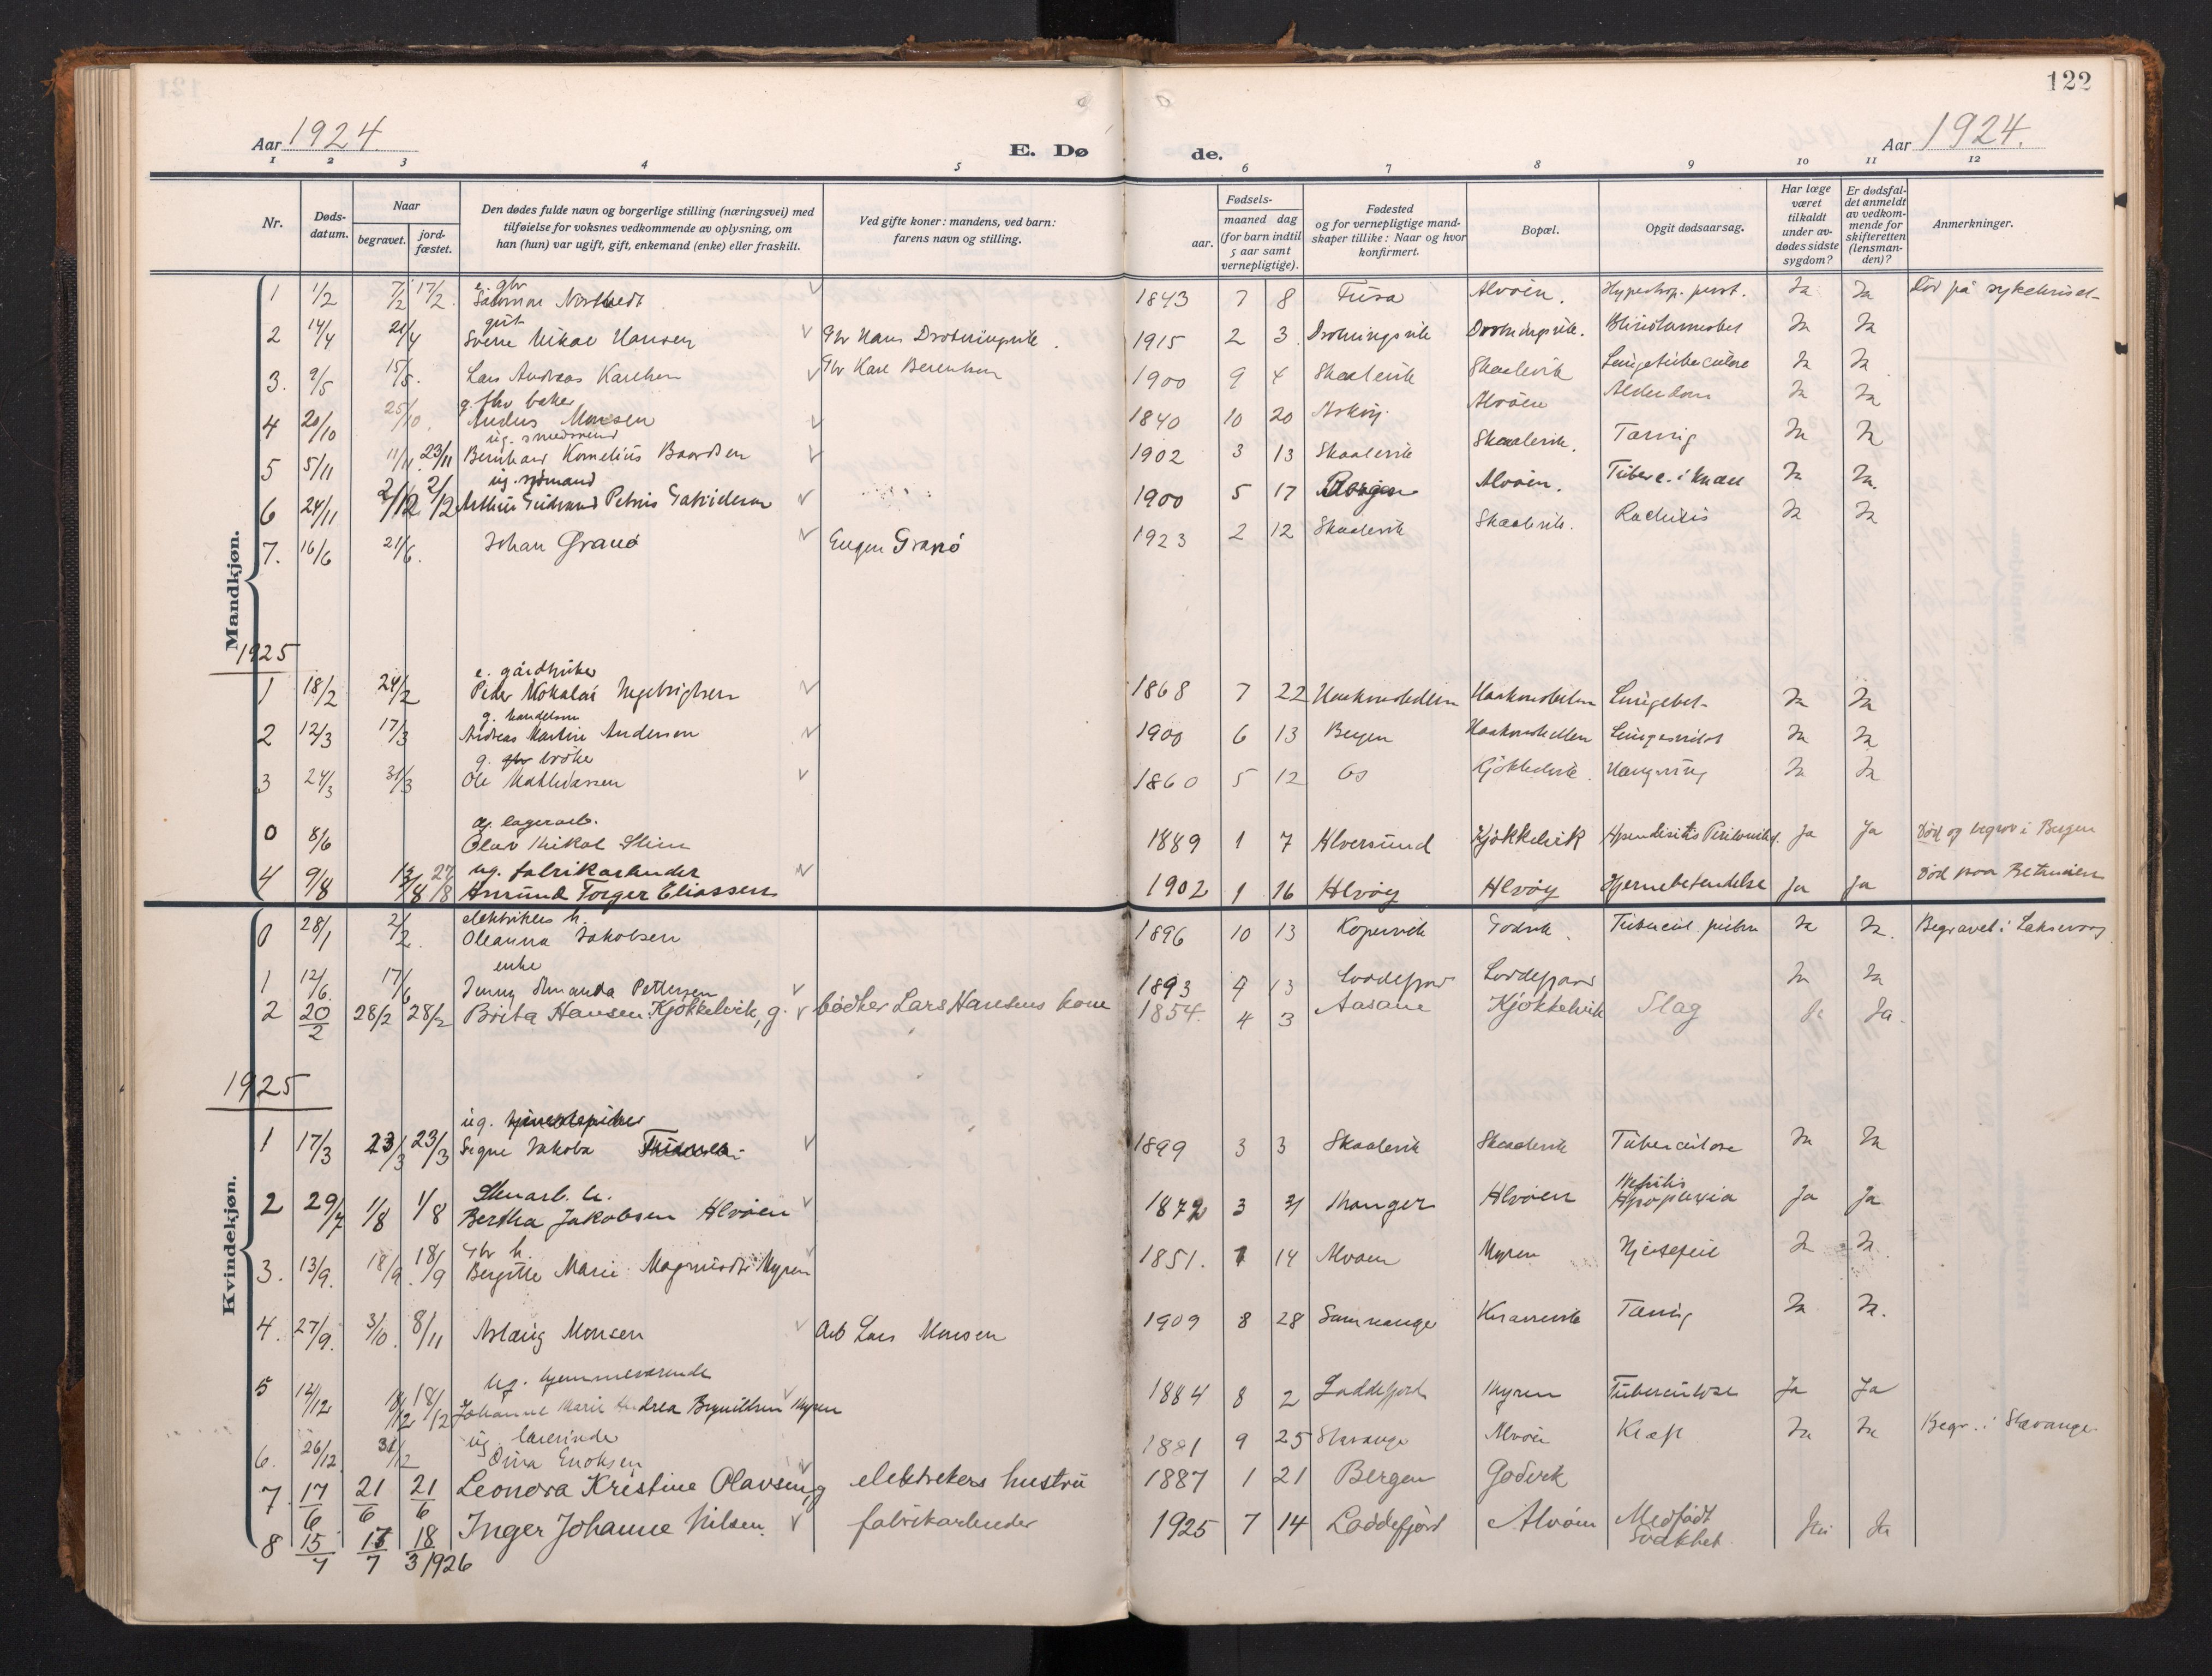 122
Aar 1924.
E. Dø de.
Aar 1924.
1 2 3 4 5 6 7 8 9 10 11 12
Nr.
Døds-
datum.
Naar
begravet.
jord-
fæstet.
Den dødes fulde navn og borgerlige stilling (næringsvei) med
tilføielse for voksnes vedkommende av oplysning, om
han (hun) var ugift, gift, enkemand (enke) eller fraskilt.
Ved gifte koner: mandens, ved barn:
farens navn og stilling.
Fødsels-
aar.
maaned dag
(for barn indtil
5 aar samt
vernepligtige).
Fødested
og for vernepligtige mand-
skaper tillike: Naar og hvor
konfirmert.
Bopæl.
Opgit dødsaarsag.
Har læge
været
tilkaldt
under av-
dødes sidste
sygdom?
Er dødsfal-
det anmeldt
av vedkom-
mende for
skifteretten
(lensman-
den)?
Anmerkninger.
Mandkjøn.
e. gbr
1 1/2 7/2 17/2. Salomon 1843 7 8 Fusa Alvøen. Ja Ja Død på
gut
2 14/4 21/4 Sverre Nikal Hansen Gbr Hans Drotningsvik. 1915 2 3 Drotningsvik Drotningsvik. Ja Ja
3. 9/5 15/5. Lars Andreas Karlsen Gbr Karl 1900 9 4 Skaalevik Skaalevik Lungetuberculose Ja Ja
g. fhv baker
4 20/10 25/10. Anders Monsen 1840 10 20 Askøy. Alvøen Alderdom Ja Ja
ug. smedsvend
5 5/11 11/11 23/11 Bernhard Kornelius Baardsen 1902 3 13 Skaalevik Skaalevik. Tæring Ja Ja
ug. sjömand
6 24/11 2/12 2/12 Arthur Petrus 1900 5 17 Bergen Alvøen. Tuberc. i knæet Ja Ja
7. 16/6 21/6. Johan Granö Eugen Granö 1923 2 12 Skaalevik Skaalevik. Rachitis Ja Ja
1925
e. gårdbruker
1 18/2 24/2 Peder Nikolai Ingebrigtsen 1868 7 22 Haakonshellen Haakonshellen Lungebet. Ja Ja
g. handelsm
2 12/3 17/3 Andreas Martin Andersen 1900 6 13 Bergen Haakonshellen Ja Ja
g. gbr
3 24/3 31/3 Ole 1860 5 12 Os Kjøkkelvik. Hængning Ja Ja
g. lagerarb.
0 8/6 Olav Mikal 1889 1 7 Alversund Kjøkkelvik Ja Ja Död og begrav i Bergen
ug. fabrikarbeider
4 9/8 13/8 27/8 Amund Torger Eliassen 1902 1 16 Alvøy Alvøy Hjernebetendelse Ja Ja död paa Betanien
Kvindekjøn.
elektrikers h.
0 28/1 2/2. Oleanna Jakobsen 1896 10 13 Kopervik Godvik. Tubercul. pulm Ja Ja. Begravet i Laksevaag
enke
1 12/6. 17/6 Jenny Amanda Pettersen 1893 9 13 Loddefjord Loddefjord Ja Ja
2 20/2 28/2 28/2 Brita Hansen Kjøkkelvik, g. bødker Lars Hansens kone 1854. 4 3 Aasane Kjøkkelvik Slag Ja Ja.
1925
ug. tjenestepike
1 17/3 23/3 23/3 Signe Jakoba 1899 3 3 Skaalevik Skaalevik Tuberculose Ja Ja
h.
2 29/7 1/8 1/8 Bertha Jakobsen Alvøen 1872 3 31 Manger Alvøen Nefritis Apoplexia Ja Ja
Gbr h.
3. 13/9. 18/9. 18/9 Bergitte Marie Myren 1851. 1 14 Alvøen Myren Hjertefeil Ja Ja.
4. 27/9. 3/10. 8/11 Aslaug Monsen Arb Lars Monsen 1909 8 28 Samnanger Tæring Ja Ja.
ug. hjemmeværende
5 12/12 18/12 18/12 Johanne Marie Andrea Brynildsen Myren 1884 8 2 Loddefjord Myren Tuberculose Ja Ja
ug lærerinde
6. 26/12 31/12 Enoksen 1881 9 25 Stavanger Alvøen Kræft Ja Ja Begr. i Stavanger
7. 17/6 21/6 21/6 Leonora Kristine Olavsen, g elektrikers hustru 1887 1 21 Bergen Godvik
8 15/7 17/7 18/3 1926 Inger Johanne Nilsen. fabrikarbeider 1925 7 14 Loddefjord Alvøen Medfødt Svakhet. Nei Ja